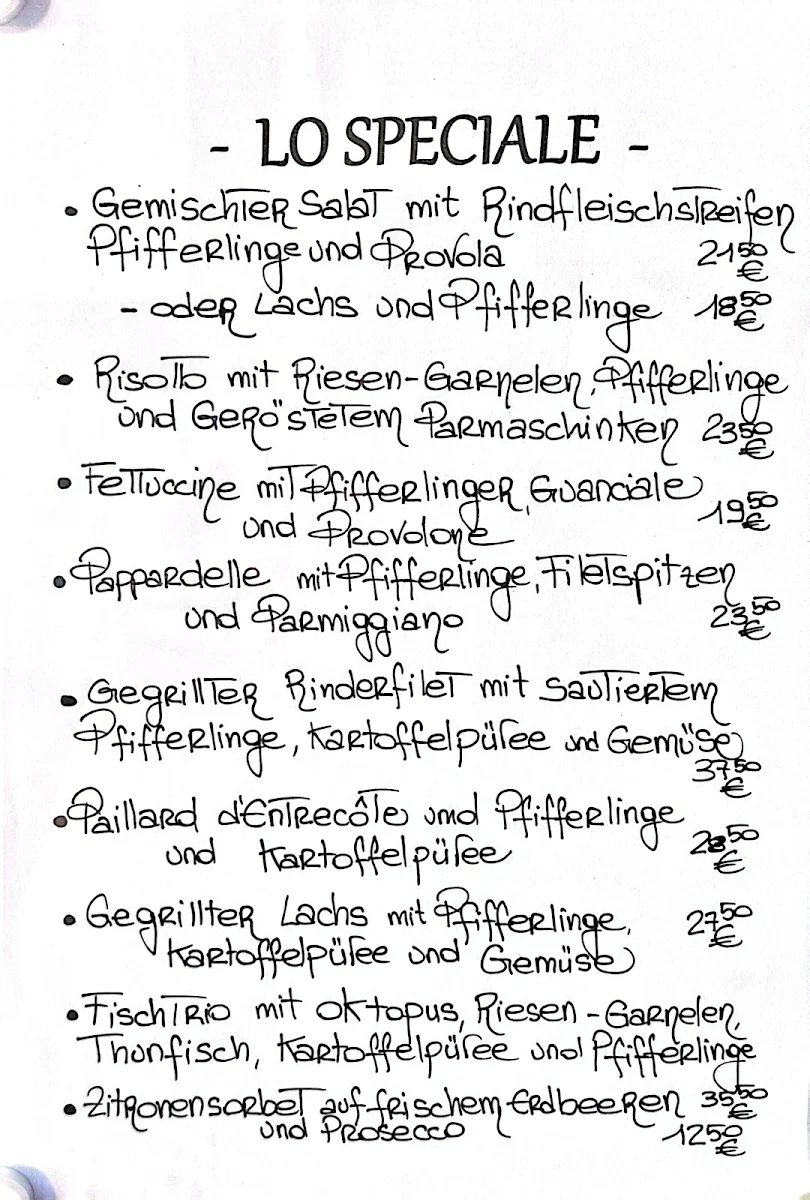 - LO SPECIALE -
• Gemischter Salat mit Rindfleischstreifen
Pfifferlinge und Provola 21,50 €
- oder Lachs und Pfifferlinge 18,50 €
• Risotto mit Riesen-Garnelen, Pfifferlinge
und Geröstetem Parmaschinken 23,50 €
• Fettuccine mit Pfifferlinger, Guanciale
und Provolone 19,50 €
• Pappardelle mit Pfifferlinge, Filetspitzen
und Parmiggiano 23,50 €
• Gegrillter Rinderfilet mit sautiertem
Pfifferlinge, Kartoffelpüree und Gemüse
37,50 €
• Paillard d'Entrecôte und Pfifferlinge
und Kartoffelpüree €
• Gegrillter Lachs mit Pfifferlinge, 27,50 €
Kartoffelpüree und Gemüse
• Fischtrio mit Oktopus, Riesen-Garnelen,
Thunfisch, Kartoffelpüree und Pfifferlinge
• Zitronensorbet auf frischem Erdbeeren 35,50 €
und Prosecco 12,50 €